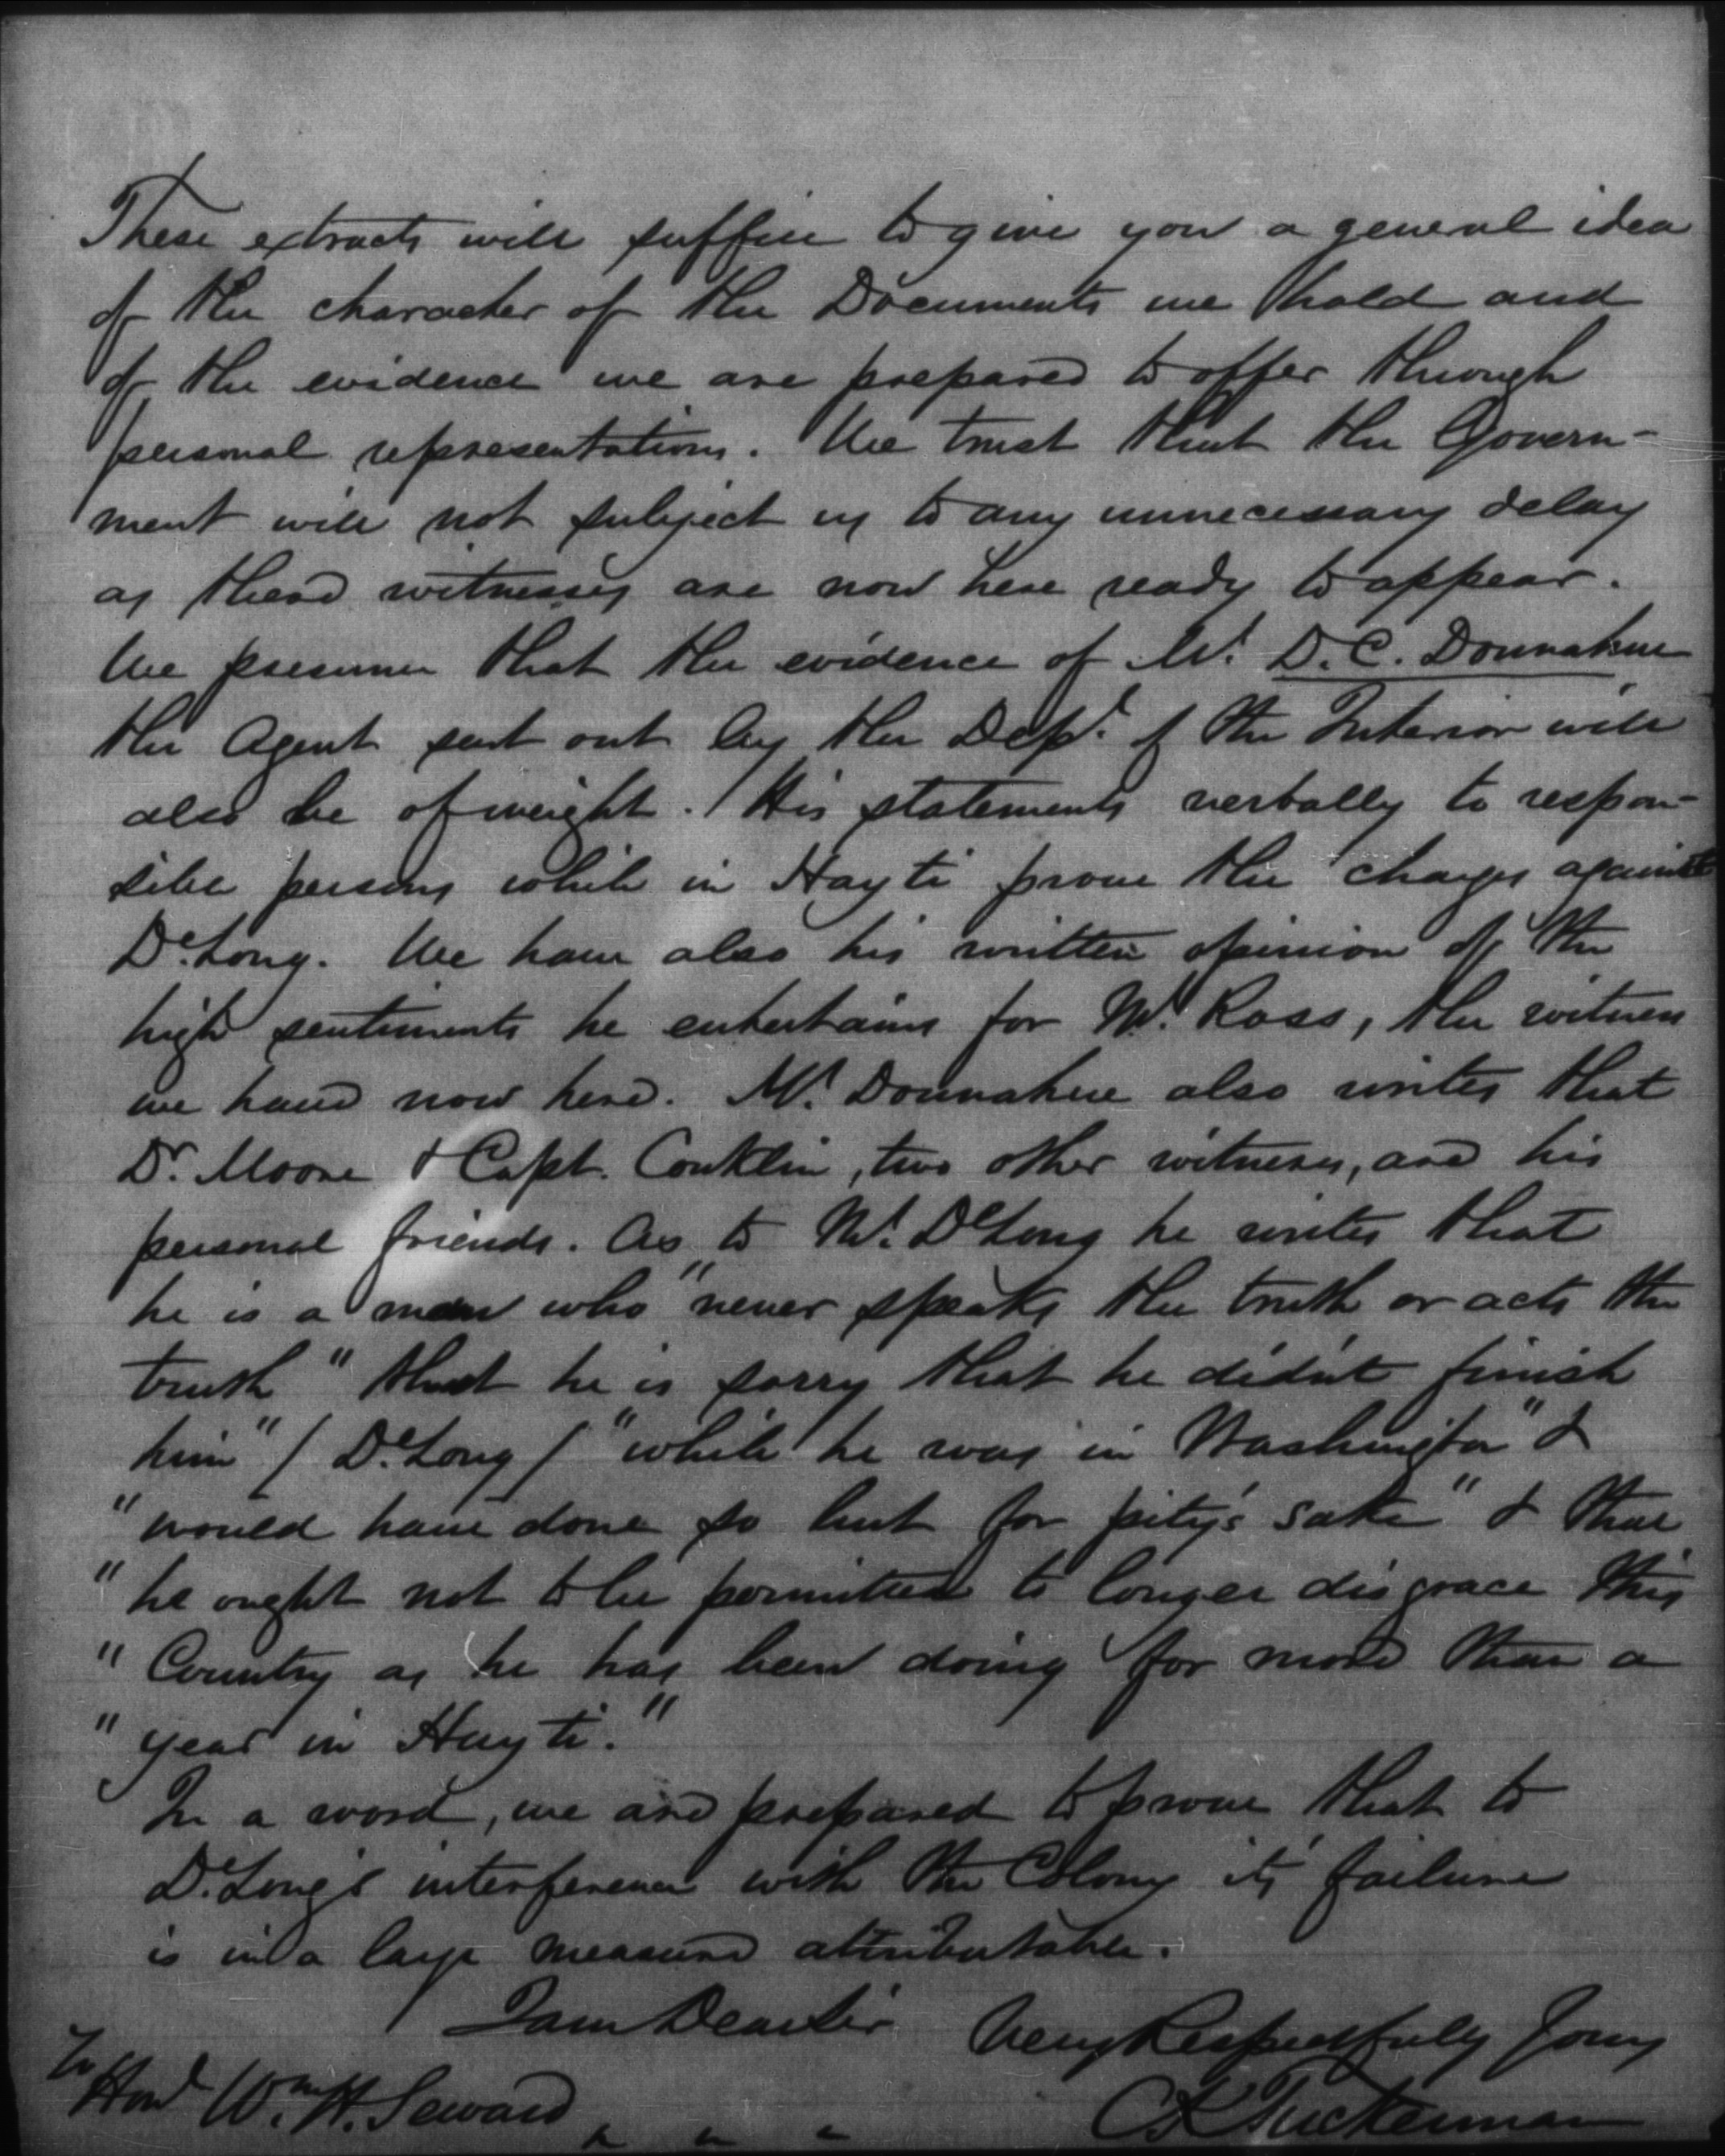 These extracts will suffice to give you a general idea
of the character of the Documents we hold and
of the evidence we are prepared to offer through
personal representations. We trust that the Govern-
ment will not subject us to any unnecessary delay
as these witnesses are now here ready to appear.
We presume that the evidence of Mr. D. C. Donnahue
the Agent sent out by the Dept. of the Interior will
also be of weight. His statements verbally to respon-
sible persons while in Hayti prove the charges against
DeLong. We have also his written opinion of the
high sentiments he entertains for Mr. Ross, the witness
we have now here. Mr. Donnahue also writes that
Dr. Moore & Capt. Conklin, two other witnesses, are his
personal friends. As to Mr. DeLong he writes that
he is a man who "never speaks the truth or acts the
truth" that he is sorry that he didn't finish
him" / DeLong / "while he was in Washington" &
"would have done so but for pity's sake" & that
"he ought not to be permitted to longer disgrace this
"Country as he has been doing for more than a
"year in Hayti."
In a word, we are prepared to prove that to
DeLong's interference with the Colony its failure
is in a large measure attributable.
I am Dear Sir Very Respectfully Yours
To
Hon Wm. H. Seward
C K Tuckerman